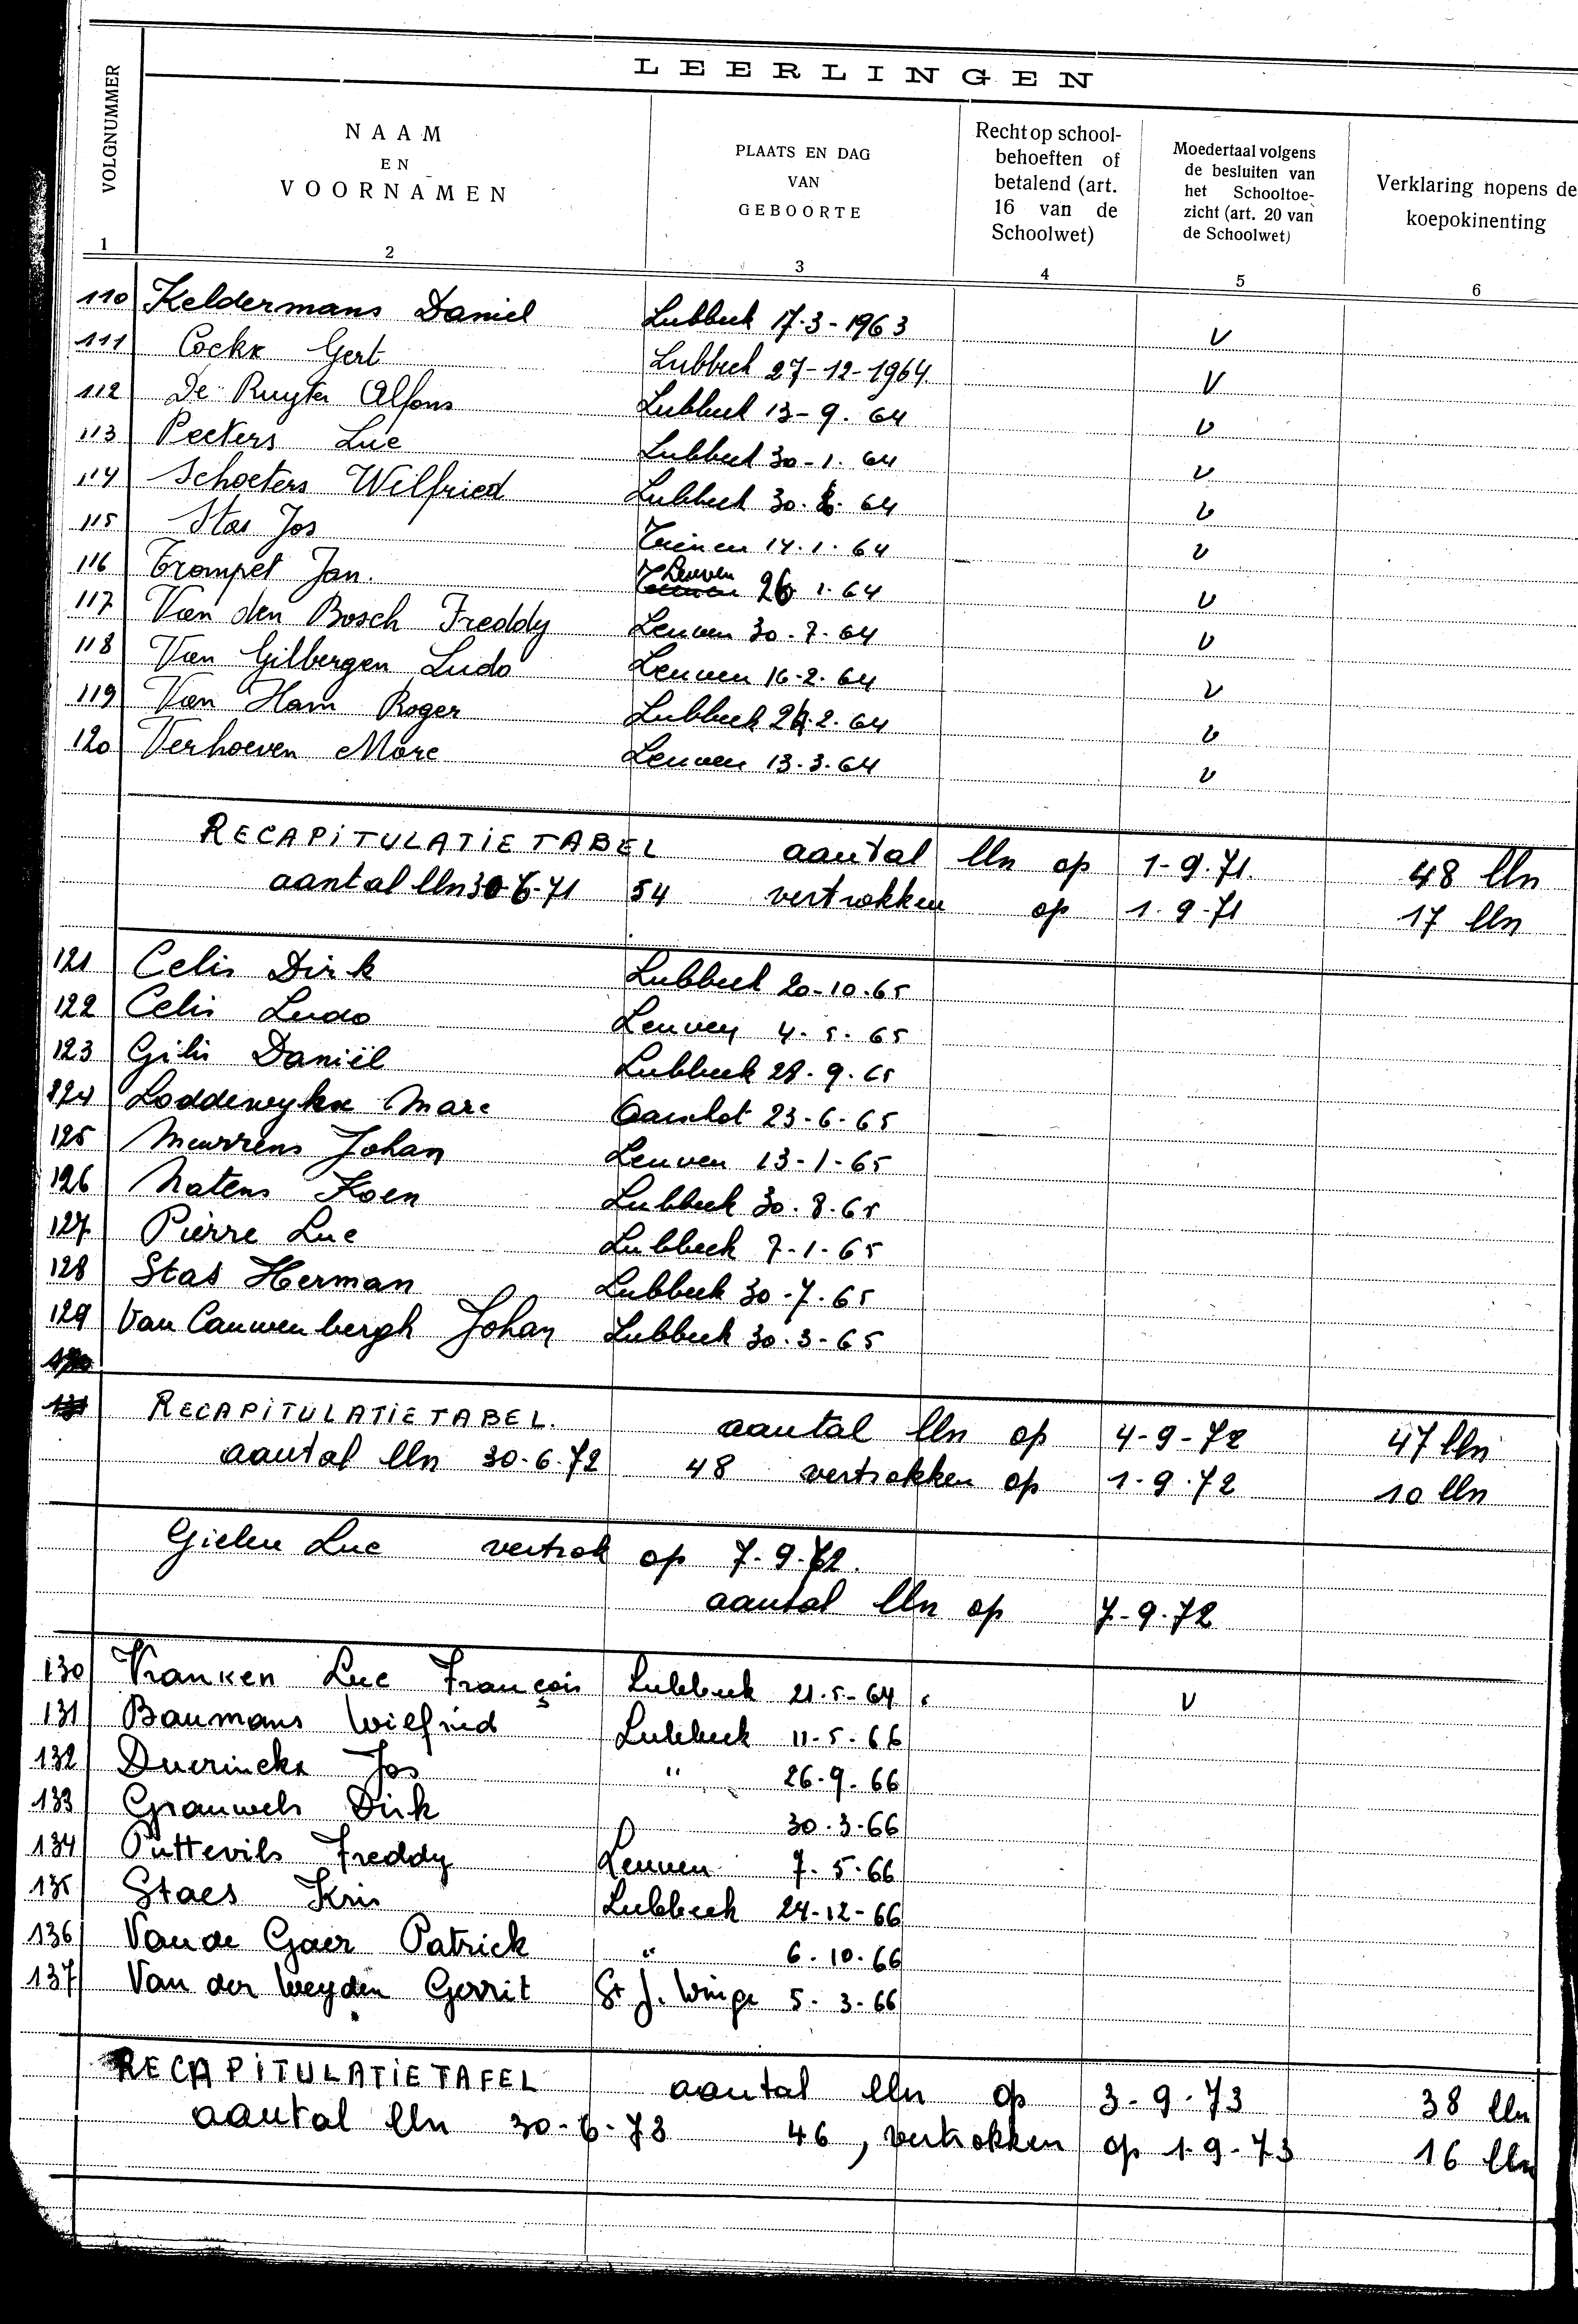 LEERLINGEN
VOLGNUMMER
NAAM
EN
VOORNAMEN
PLAATS EN DAG
VAN
GEBOORTE
Recht op school-
behoeften of
betalend (art.
16 van de
Schoolwet)
Moedertaal volgens
de besluiten van
het Schooltoe-
zicht (art. 20 van
de Schoolwet)
Verklaring nopens de
koepokinenting
1 2 3 4 5 6
110 Keldermans Daniel Lubbeek 17-3-1963 V
111 Cockx Gert Lubbeek 27-12-1964 V
112 De Ruyter Alfons Lubbeek 13-9-64 V
113 Peeters Luc Lubbeek 30-1-64 V
114 Schoeters Wilfried Lubbeek 30. 64 V
115 Stas Jos Tienen 14.1.64 V
116 Trompet Jan. Leuven 26 1.64 V
117 Van den Bosch Freddy Leuven 30.7.64 V
118 Van Gilbergen Ludo Leuven 16.2.64 V
119 Van Ham Roger Lubbeek 2.64 V
120 Verhoeven Marc Leuven 13.3.64 V
RECAPITULATIETABEL aantal lln op 1-9.71. 48 lln
aantal lln 30-6-71 54 vertrokken op 1.9.71 17 lln
121 Celis Dirk Lubbeek 20-10-65
122 Celis Ludo Leuven 4.5.65
123 Gilis Daniël Lubbeek 28.9.65
124 Loddewykx Marc Aarschot 23-6-65
125 Meurrens Johan Leuven 13-1-65
126 Natens Koen Lubbeek 30.8.65
127 Pierre Luc Lubbeek 7-1-65
128 Stas Herman Lubbeek 30-7.65
129 Van Cauwenbergh Johan Lubbeek 30.3-65
130
131
RECAPITULATIETABEL. aantal lln op 4-9-72 47 lln
aantal lln 30.6.72 48 vertrokken op 1-9.72 10 lln
Gielen Luc vertrok op 7-9.72.
aantal lln op 7-9.72
130 Vranken Luc François Lubbeek 21.5-64 V
131 Baumans Wielfried Lubbeek 11-5.66
132 Duerinckx Jos " 26.9.66
133 Grauwels Dirk 30.3-66
134 Puttevils Freddy Leuven 7.5.66
135 Staes Kris Lubbeek 24-12-66
136 Vande Gaer Patrick " 6.10.66
137 Van der Weyden Gerrit St J. Winge 5.3-66
RECAPITULATIETAFEL aantal lln op 3-9.73 38 lln
aantal lln 30-6-73 46, vertrokken op 1-9-73 16 lln